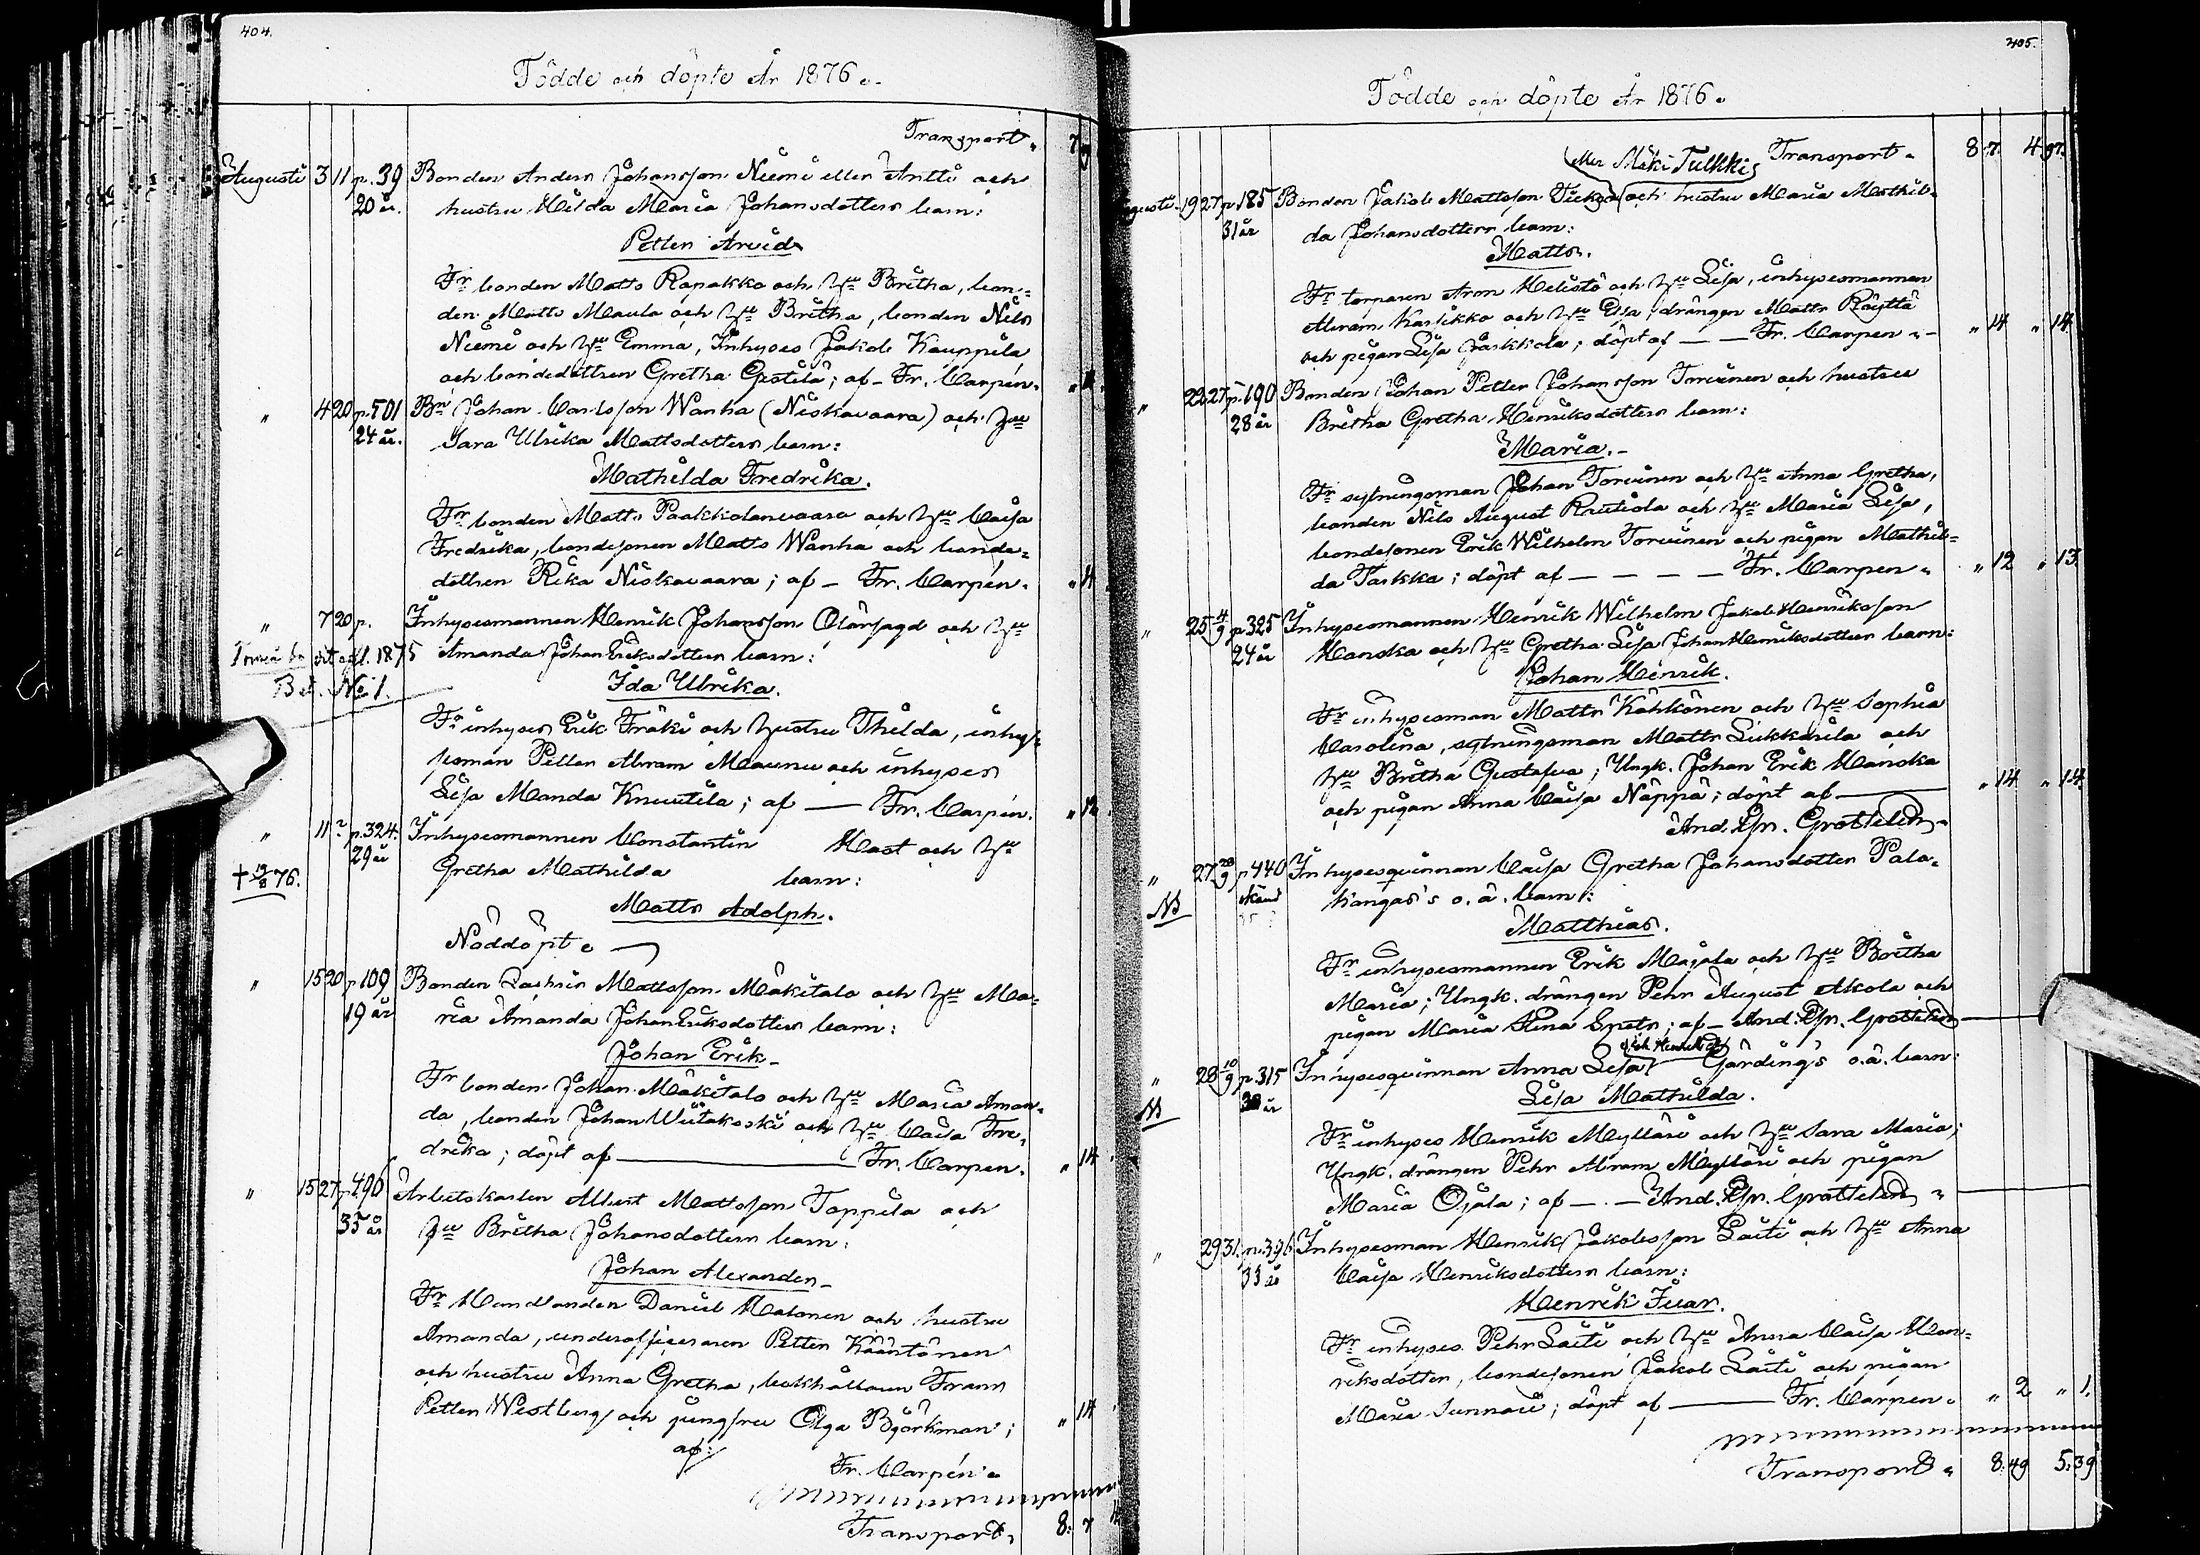 404.
Födde och döpte År 1876.
Transport. 7
Augusti 3 11 p. 39 Bonden Anders Johansson Niemi eller Antti och
20 år. hustru Hilda Maria Johansdotters barn:
Petter Arvid
Fr bonden Matts Rapakko och Hu Britha, bon-
den Matts Maula och Hu Britha, bonden Nils
Niemi och Hu Emma, Inhyses Jakob Kauppila
och bondedottren Gretha Gestilä; af – Fr. Carpén.
" 4 20 p. 501 Bn Johan Carlsson Wanha (Niskavaara) och Hu
24 år. Sara Ulrika Mattsdotters barn:
Mathilda Fredrika.
Fr bonden Matts Paakkolanvaara och Hu Caisa
Fredrika, bondesonen Matts Wanha och bonde-
dottren Rika Niskavaara; af – Fr. Carpén.
" 7 20 p. Inhysesmannen Henrik Johansson Olärjagd och Hu
1875 Amanda Johan Eriksdotters barn:
Bil. No 1. Ida Ulrika.
Fr inhyses Erik Fräki och hustru Thilda, inhys-
esman Petter Abram Maunu och inhyses
Lisa Manda Knuutila; af — Fr. Carpén. " 12
" 11 p. 324. Inhysesmannen Constantin Mast och Hu
29 år Gretha Mathilda barn:
† 19/8 76.
Matts Adolph.
Nöddöpt.
" 15 20 p 109 Bonden Zachris Mattsson Mäkitalo och Hu Ma-
19 år ria Amanda Johan Eriksdotters barn:
Johan Erik
Fr bonden Johan Mäkitalo och Hu Maria Aman-
da, bonden Johan Wiitakoski och Hu Caisa Fre-
drika; döpt af — Fr. Carpen. " 14
" 15 27 p. 496 Arbetskarlen Albert Mattsson Toppila och
35 år Hu Britha Johansdotters barn:
Johan Alexander
Fr Handlanden Daniel Hatonen och hustru
Amanda, underofficeraren Petter Kääntönen
och hustru Anna Gretha, bokhållaren Frans
Petter Westberg och jungfru Olga Björkman; " 14
af:
Fr. Carpén.
Transport. 8: 7
405.
Födde och döpte År 1876.
eller Mäki Tulkki Transport. 8 7. 4 97.
Augusti. 19 27 p 185 Bonden Jakob Mattsson och hustru Maria Mathil-
31 år da Johansdotters barn:
Matts.
Fr torparen Aron Helistö och Hu Lisa, inhysesmannen
Abram Karsikko och Hu Elsa, drängen Matts Räyttä
och pigan Lisa Jaskkola; döpt af — Fr. Carpen. " 14 " 14
" 22 27 p. 190 Bonden Johan Petter Johansson Torvinen och hustru
28 år Britha Gretha Henriksdotters barn:
Maria.
Fr sytningsman Johan Torvinen och Hu Anna Gretha,
bonden Nils August Rautiola och Hu Maria Lisa,
bondesonen Erik Wilhelm Torvinen och pigan Mathil-
da Taskka; döpt af — — — — Fr. Carpen. " 12 " 13.
" 25 4/9 p 325 Inhysesmannen Henrik Wilhelm Jakob Henriksson
24 år Hanska och Hu Gretha Lisa Johan Henriksdotters barn:
Johan Henrik.
Fr inhysesman Matts Kähkönen och Hu Sophia
Carolina, sytningsman Matts Liekkarila och
Hu Britha Gustafva; Ungk. Johan Erik Hanska
och pigan Anna Caisa Näppä; döpt af — " 14 " 14
And. Joh. Grotteliud
" 27 20/9 p 440 Inhysesqvinnan Caisa Gretha Johansdotter Palo-
NB kangas's o.ä. barn:
Matthias.
Fr inhysesmannen Erik Majala och Hu Britha
Maria; Ungk. drängen Pehr August Alkola och
pigan Maria Stina Spets; af –
" 28 10/9 p. 315 Inhysesqvinnan Anna Lisa Gärding's o.ä. barn:
NB
Lisa Mathilda.
Fr inhyses Henrik Mylläri och Hu Sara Maria;
Ungk. drängen Pehr Abram Mylläri och pigan
Maria Ojala; af —
" 29 31. p. 396 Inhysesman Henrik Jakobsson Laiti och Hu Anna
33 år Caisa Henriksdotters barn:
Henrik Ivar.
Fr inhyses Pehr Laiti och Hu Anna Caisa Hen-
riksdotter, bondesonen Jakob Laiti och pigan
Maria Sunnari; döpt af — Fr. Carpen. " 2 " 1.
Transport. 8: 49 5: 39